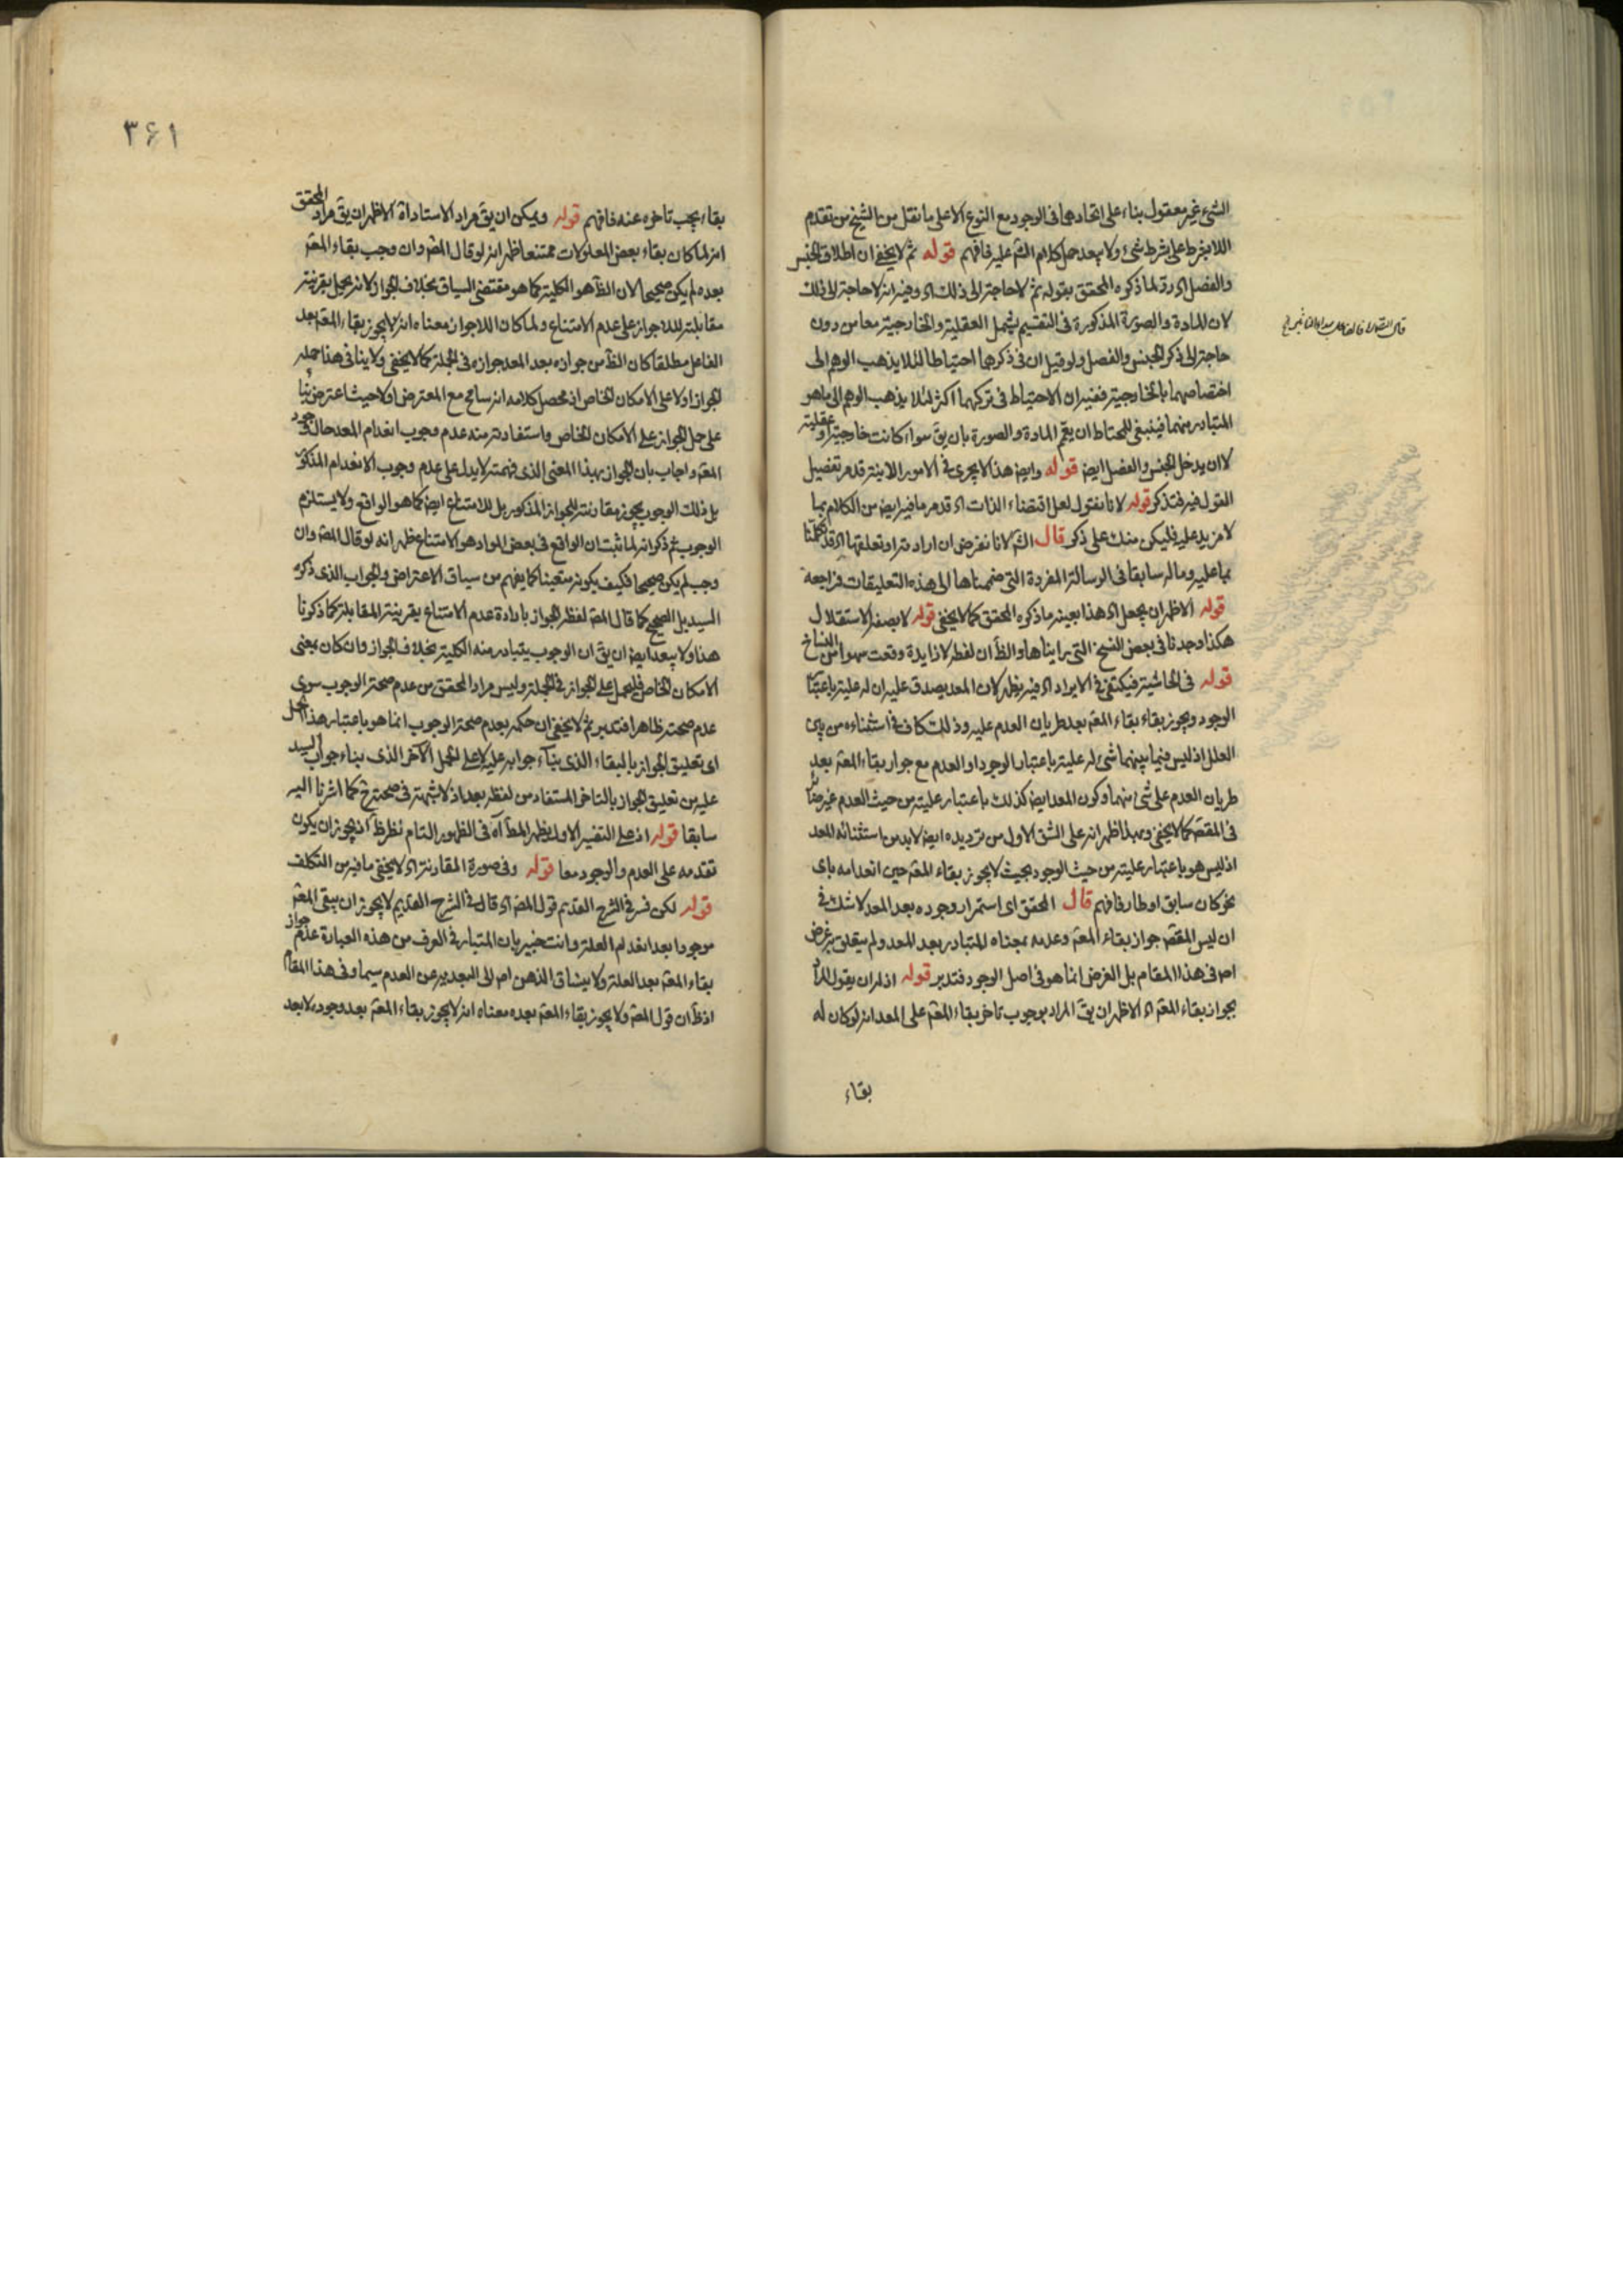 الشئ غير معقول بناء على اتحادهما فى الوجود مع النوع الا على ما نقل من الشيخ من تقدم
اللا بشرط على بشرط شئ ولا يبعد حمل كلام الش عليه فافهم قوله ثم لا يخفى ان اطلاق الجنس
والفصل اه رد لما ذكره المحقق بقوله ثم لا حاجة الى ذلك اه وفيه انه لا حاجة الى ذلك
لان المادة والصورة المذكورة فى التقسيم يشمل العقلية والخارجية معا من دون
حاجة الى ذكر الجنس والفصل ولو قيل ان فى ذكرهما احتياطا لئلا يذهب الوهم الى
اختصاصهما بالخارجية ففيه ان الاحتياط فى تركهما اكثر لئلا يذهب الوهم الى ما هو
المتبادر منهما فينبغى للمحتاط ان يعمم المادة والصورة بان يق سواء كانت خارجية او عقلية
لا ان يدخل الجنس والفصل ايض قوله وايض هذا لا يجرى فى الامور اللاينة قد مر تفصيل
القول فيه فتذكر قوله لانا نقول لعل اقتضاء الذات اه قد مر ما فيه ايض من الكلام بما
لا مزيد عليه فليكن منك على ذكر قال الش لانا نفرض ان ارادته او تعلقها اه قد تكلمنا
بما عليه وما له سابقا فى الرسالة المفردة التى ضممناها الى هذه التعليقات فراجعه
قوله الاظهر ان يجعل اه هذا بعينه ما ذكره المحقق كما لا يخفى قوله لا بصفة الاستقلال
هكذا وجدنا فى بعض النسخ التى رايناها والظ ان لفظ لا زايدة وقعت سهوا من النساخ
قوله فى الحاشية فيكتفى فى الايراد اه فيه نظر لان المعد يصدق عليه ان له علية باعتبار
الوجود ويجوز بقاء بقاء المعه بعد طريان العدم عليه وذلك كاف فى استثناءه من بين
العلل اذ ليس فيما بينهما شئ له علية باعتبار الوجود او العدم مع جواز بقاء المعه بعد
طريان العدم على شئ منهما وكون المعد ايض كذلك باعتبار عليته من حيث العدم غير ضائر
فى المقصه كما لا يخفى وبهذا ظهر انه على الشق الاول من ترديده ايض لا بد من استثنائه المعد
اذ ليس هو باعتبار عليته من حيث الوجود بحيث لا يجوز بقاء المعه حين انعدامه باى
نحو كان سابق او طار فافهم قال المحقق اى استمرار وجوده بعد المعد لا شك فى
ان ليس المقصه جواز بقاء المعه وعدمه بمعناه المتبادر بعد المعد ولم يتعلق به غرض
اصه فى هذا المقام بل الغرض انما هو فى اصل الوجود فتدبر قوله اذ له ان يقول المراد
بجواز بقاء المعه اه الاظهر ان يق المراد بوجوب تاخر بقاء المعه على المعد انه لو كان له
بقاء
۳۶۱
بقاء يجب تاخره عنه فافهم قوله ويمكن ان يق مراد الاستاد اه الاظهر ان يق مراد المحقق
انه لما كان بقاء بعض المعلولات ممتنعا ظهر انه لو قال المص وان وجب بقاء المعه
بعده لم يكن صحيحا لان الظ هو الكلية كما هو مقتضى السياق بخلاف الجواز لانه يحمل بقرينة
مقابلته للاجواز على عدم الامتناع ولما كان اللاجواز معناه انه لا يجوز بقاء المعه بعد
الفاعل مطلقا كان الظ من جوازه بعد المعد جوازه فى الجملة كما لا يخفى ولا ينافى هذا حمله
الجواز اولا على الامكان الخاص اذ محصل كلامه انه سامح مع المعترض اولا حيث اعترض بناء
على حمل الجواز على الامكان الخاص واستفادته منه عدم وجوب انعدام المعد حال وجود
المعه واجاب بان الجواز بهذا المعنى الذى فهمته لا يدل على عدم وجوب الانعدام المذكور
بل ذلك الوجوب يجوز مقارنته للجواز المذكور بل للامتناع ايض كما هو الواقع ولا يستلزم
الوجوب ثم ذكر انه لما ثبت ان الواقع فى بعض المواد هو الامتناع ظهر انه لو قال المص وان
وجب لم يكن صحيحا فكيف يكون متعينا كما يفهم من سياق الاعتراض والجواب الذى ذكره
السيد بل الصحيح كما قال المص لفظ الجواز بارادة عدم الامتناع بقرينة المقابلة كما ذكرنا
هذا ولا يبعد ايض ان يق ان الوجوب يتبادر منه الكلية بخلاف الجواز وان كان بمعنى
الامكان الخاص فليحمل على الجواز فى الجملة وليس مراد المحقق من عدم صحة الوجوب سوى
عدم صحته ظاهرا فتدبر ثم لا يخفى ان حكمه بعدم صحة الوجوب انما هو باعتبار هذا الحمل
اى تعليق الجواز بالبقاء الذى بناء جوابه عليه لا على الحمل الآخر الذى بناء جواب السيد
عليه من تعليق الجواز بالتاخر المستفاد من لفظ بعد اذ لا شبهة فى صحته ح كما اشرنا اليه
سابقا قوله اذ على التفسير الاول يظهر المط آه فى الظهور التام نظر ظ اذ يجوز ان يكون
تقدمه على العدم والوجود معا قوله وفى صورة المقارنة اه لا يخفى ما فيه من التكلف
قوله لكن فسر فى الشرح القديم قول المص اه قال فى الشرح القديم لا يجوز ان يبقى المعه
موجودا بعد انعدام العلة وانت خبير بان المتبادر فى العرف من هذه العبارة عدم جواز
بقاء المعه بعد العلة ولا ينساق الذهن اصه الى البعدية عن العدم سيما وفى هذا المقام
اذ ظ ان قول المص ولا يجوز بقاء المعه بعده معناه انه لا يجوز بقاء المعه بعد وجوده لا بعد